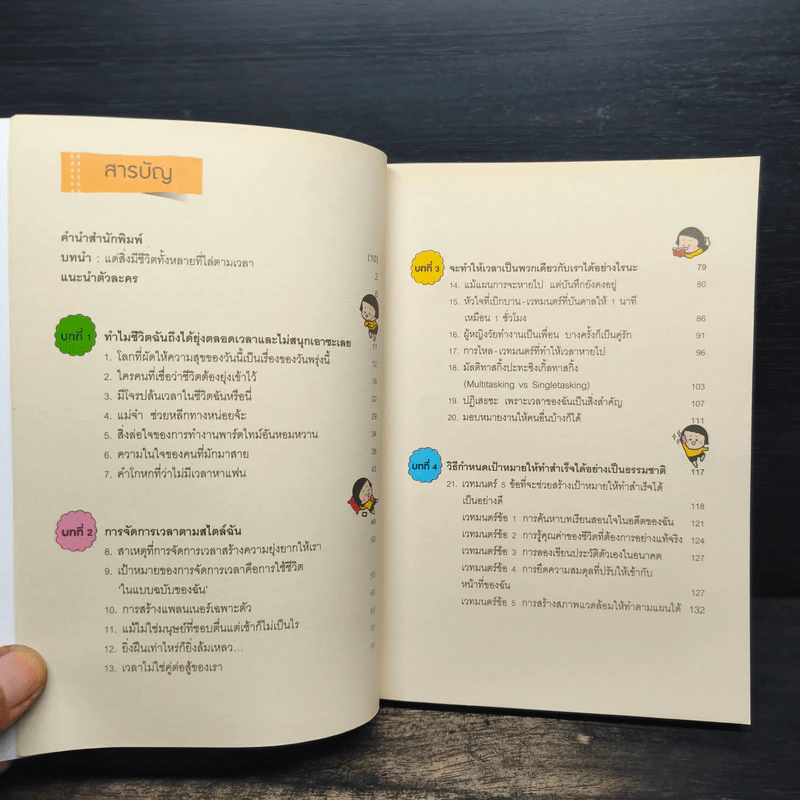 สารบัญ
คำนำสำนักพิมพ์ (10)
บทนำ : แด่สิ่งมีชีวิตทั้งหลายที่ไล่ตามเวลา 2
แนะนำตัวละคร
บทที่ 1 ทำไมชีวิตฉันถึงได้ยุ่งตลอดเวลาและไม่สนุกเอาซะเลย 11
1. โลกที่ผัดให้ความสุขของวันนี้เป็นเรื่องของวันพรุ่งนี้ 12
2. ใครคนที่เชื่อว่าชีวิตต้องยุ่งเข้าไว้ 19
3. มีโจรปล้นเวลาในชีวิตฉันหรือนี่ 22
4. แม่จ๋า ช่วยหลีกทางหน่อยจ้ะ 28
5. สิ่งล่อใจของการทำงานพาร์ตไทม์อันหอมหวาน 34
6. ความในใจของคนที่มักมาสาย 38
7. คำโกหกที่ว่าไม่มีเวลาหาแฟน 43
บทที่ 2 การจัดการเวลาตามสไตล์ฉัน 49
8. สาเหตุที่การจัดการเวลาสร้างความยุ่งยากให้เรา 50
9. เป้าหมายของการจัดการเวลาคือการใช้ชีวิต
'ในแบบฉบับของฉัน' 55
10. การสร้างแพลนเนอร์เฉพาะตัว 60
11. แม้ไม่ใช่มนุษย์ที่ชอบตื่นแต่เช้าก็ไม่เป็นไร
12. ยิ่งฝืนเท่าไหร่ก็ยิ่งล้มเหลว...
13. เวลาไม่ใช่คู่ต่อสู้ของเรา
บทที่ 3 จะทำให้เวลาเป็นพวกเดียวกับเราได้อย่างไรนะ 79
14. แม้แผนการจะหายไป แต่บันทึกยังคงอยู่ 80
15. หัวใจที่เบิกบาน-เวทมนตร์ที่บันดาลให้ 1 นาที
เหมือน 1 ชั่วโมง 86
16. ผู้หญิงวัยทำงานเป็นเพื่อน บางครั้งก็เป็นคู่รัก 91
17. การไหล-เวทมนตร์ที่ทำให้เวลาหายไป 96
18. มัลติทาสกิ้งปะทะซิงเกิ้ลทาสกิ้ง
(Multitasking vs Singletasking) 103
19. ปฏิเสธซะ เพราะเวลาของฉันเป็นสิ่งสำคัญ 107
20. มอบหมายงานให้คนอื่นบ้างก็ได้ 111
บทที่ 4 วิธีกำหนดเป้าหมายให้ทำสำเร็จได้อย่างเป็นธรรมชาติ 117
21. เวทมนตร์ 5 ข้อที่จะช่วยสร้างเป้าหมายให้ทำสำเร็จได้
เป็นอย่างดี 118
เวทมนตร์ข้อ 1 การค้นหาบทเรียนสอนใจในอดีตของฉัน 121
เวทมนตร์ข้อ 2 การรู้คุณค่าของชีวิตที่ต้องการอย่างแท้จริง 124
เวทมนตร์ข้อ 3 การลองเขียนประวัติตัวเองในอนาคต 127
เวทมนตร์ข้อ 4 การยึดความสมดุลที่ปรับให้เข้ากับ
หน้าที่ของฉัน 127
เวทมนตร์ข้อ 5 การสร้างสภาพแวดล้อมให้ทำตามแผนได้ 132